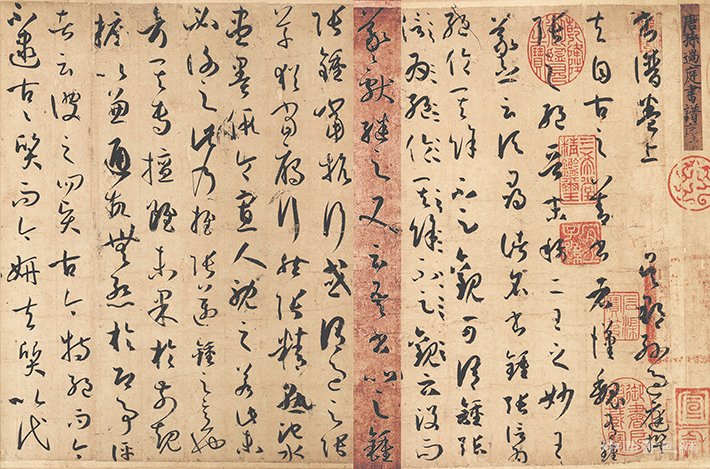 唐孫過庭書譜序
書譜卷上 吳郡孫過庭撰
夫自古之善書者漢魏有鍾
張之絕晉末稱二王之妙王
羲之云頃尋諸名書鍾張信為
絕倫其餘不足觀可謂鍾張
為絕倫其餘不足觀云沒而
羲獻繼之又云吾書比之鍾
張鍾當抗行或謂過之張
草猶當雁行然張精熟池水
盡墨假令寡人耽之若此未
必謝之此乃推張邁鍾之意也
考其專擅雖未果於前規
摭以兼通故無慚於即事評
者云彼之四賢古今特絕而今
不逮古古質而今妍夫質以代